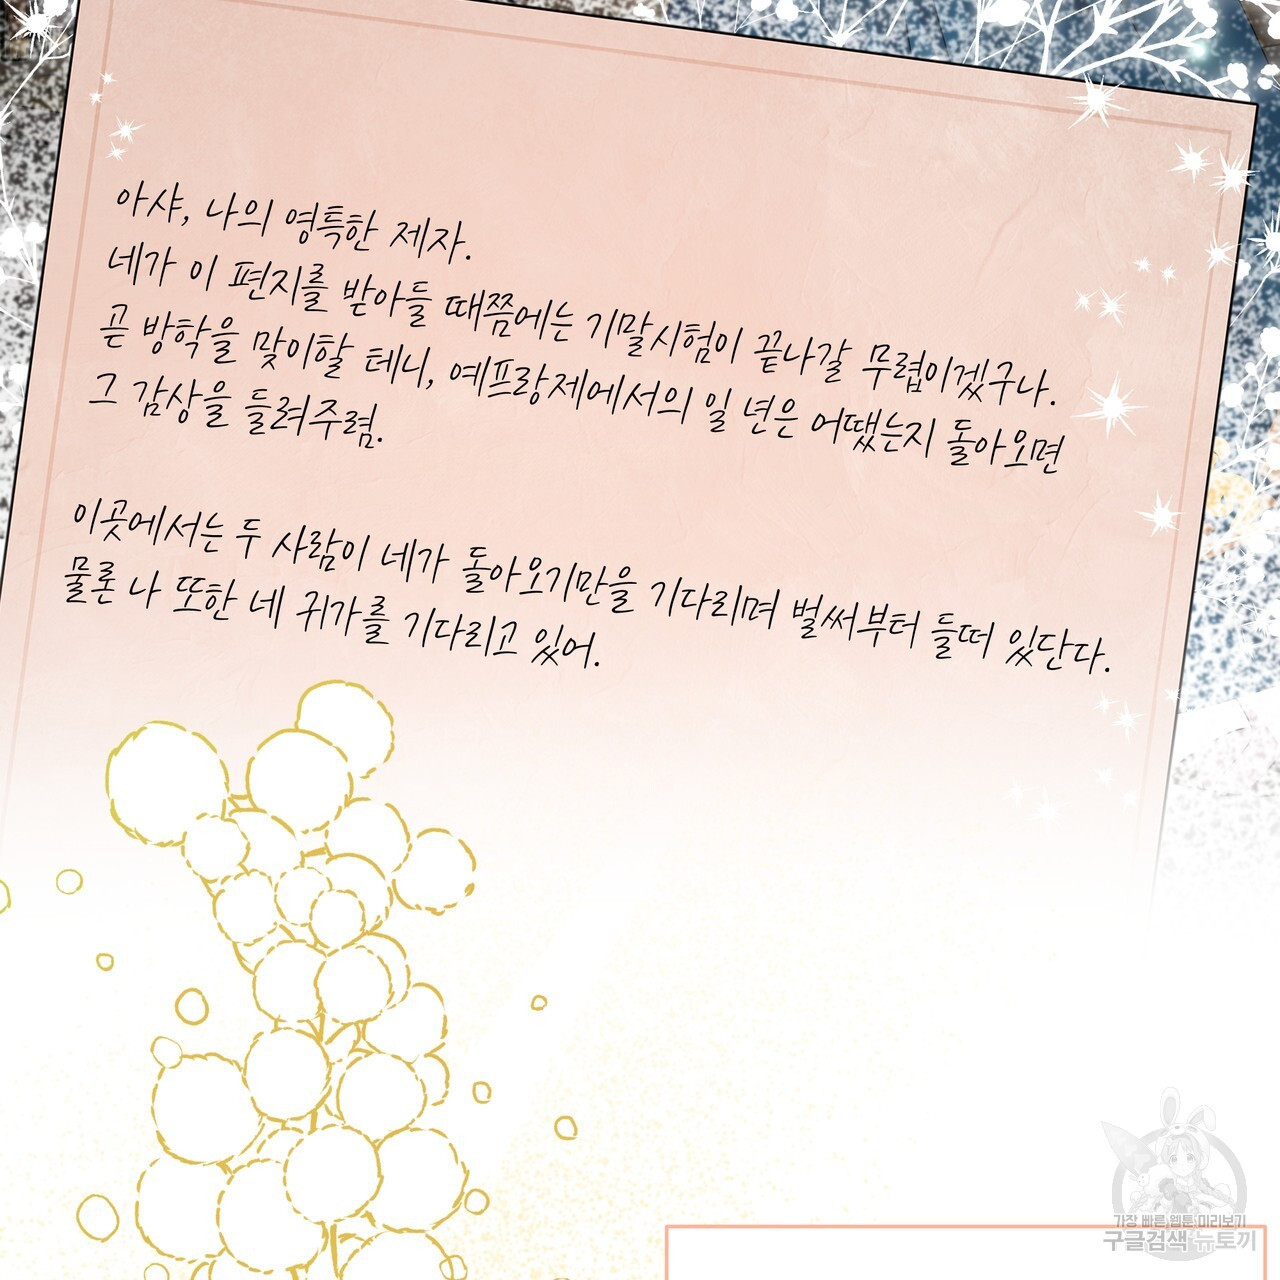 아샤, 나의 영특한 제자.
네가 이 편지를 받아들 때쯤에는 기말시험이 끝나갈 무렵이겠구나.
곧 방학을 맞이할 테니, 예프랑제에서의 일 년은 어땠는지 돌아오면
그 감상을 들려주렴.
이곳에서는 두 사람이 네가 돌아오기만을 기다리며 벌써부터 들떠 있단다.
물론 나 또한 네 귀가를 기다리고 있어.
가장 빠른 웹툰 미리보기
구글검색 뉴토끼